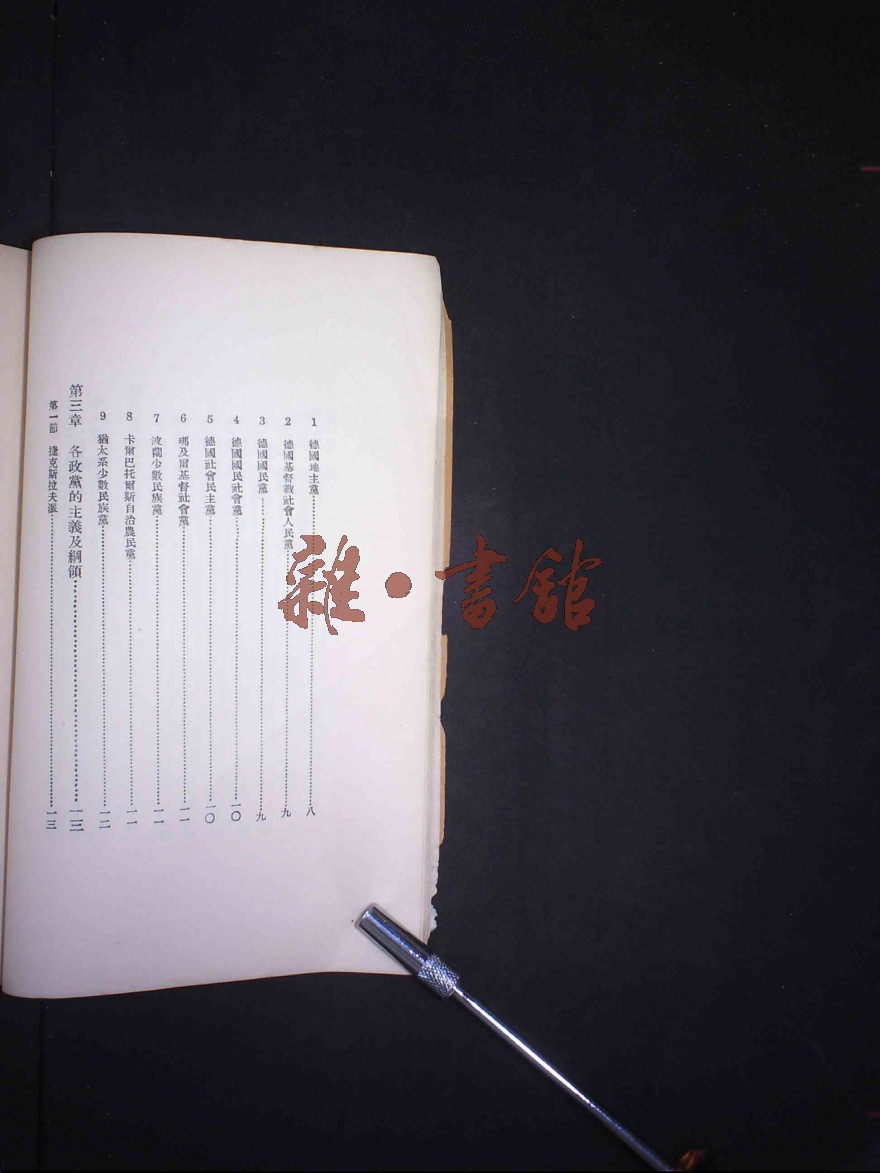 1 德國地主黨……八
2 德國基督敎社會人民黨……九
3 德國國民黨……九
4 德國國民社會黨……一〇
5 德國社會民主黨……一〇
6 瑪及爾基督社會黨……一一
7 波蘭少數民族黨……一一
8 卡爾巴托爾斯自治農民黨……一一
9 猶太系少數民族黨……一二
第三章 各政黨的主義及綱領……一三
第一節 捷克斯拉夫派……一三
雜·書館